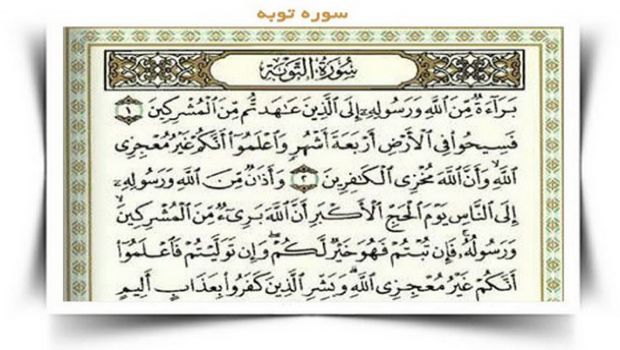 سوره توبه
سُورَةُ التَّوْبَةِ
بَرَآءَةٌ مِّنَ اللَّهِ وَرَسُولِهِۦٓ إِلَى الَّذِينَ عَٰهَدتُّم مِّنَ الْمُشْرِكِينَ ١
فَسِيحُوا فِي الْأَرْضِ أَرْبَعَةَ أَشْهُرٍ وَاعْلَمُوٓا أَنَّكُمْ غَيْرُ مُعْجِزِي
اللَّهِ ۙ وَأَنَّ اللَّهَ مُخْزِي الْكَٰفِرِينَ ٢ وَأَذَٰنٌ مِّنَ اللَّهِ وَرَسُولِهِۦٓ
إِلَى النَّاسِ يَوْمَ الْحَجِّ الْأَكْبَرِ أَنَّ اللَّهَ بَرِيٓءٌ مِّنَ الْمُشْرِكِينَ ۙ
وَرَسُولُهُۥ ۚ فَإِن تُبْتُمْ فَهُوَ خَيْرٌ لَّكُمْ ۖ وَإِن تَوَلَّيْتُمْ فَاعْلَمُوٓا
أَنَّكُمْ غَيْرُ مُعْجِزِي اللَّهِ ۗ وَبَشِّرِ الَّذِينَ كَفَرُوا بِعَذَابٍ أَلِيمٍ